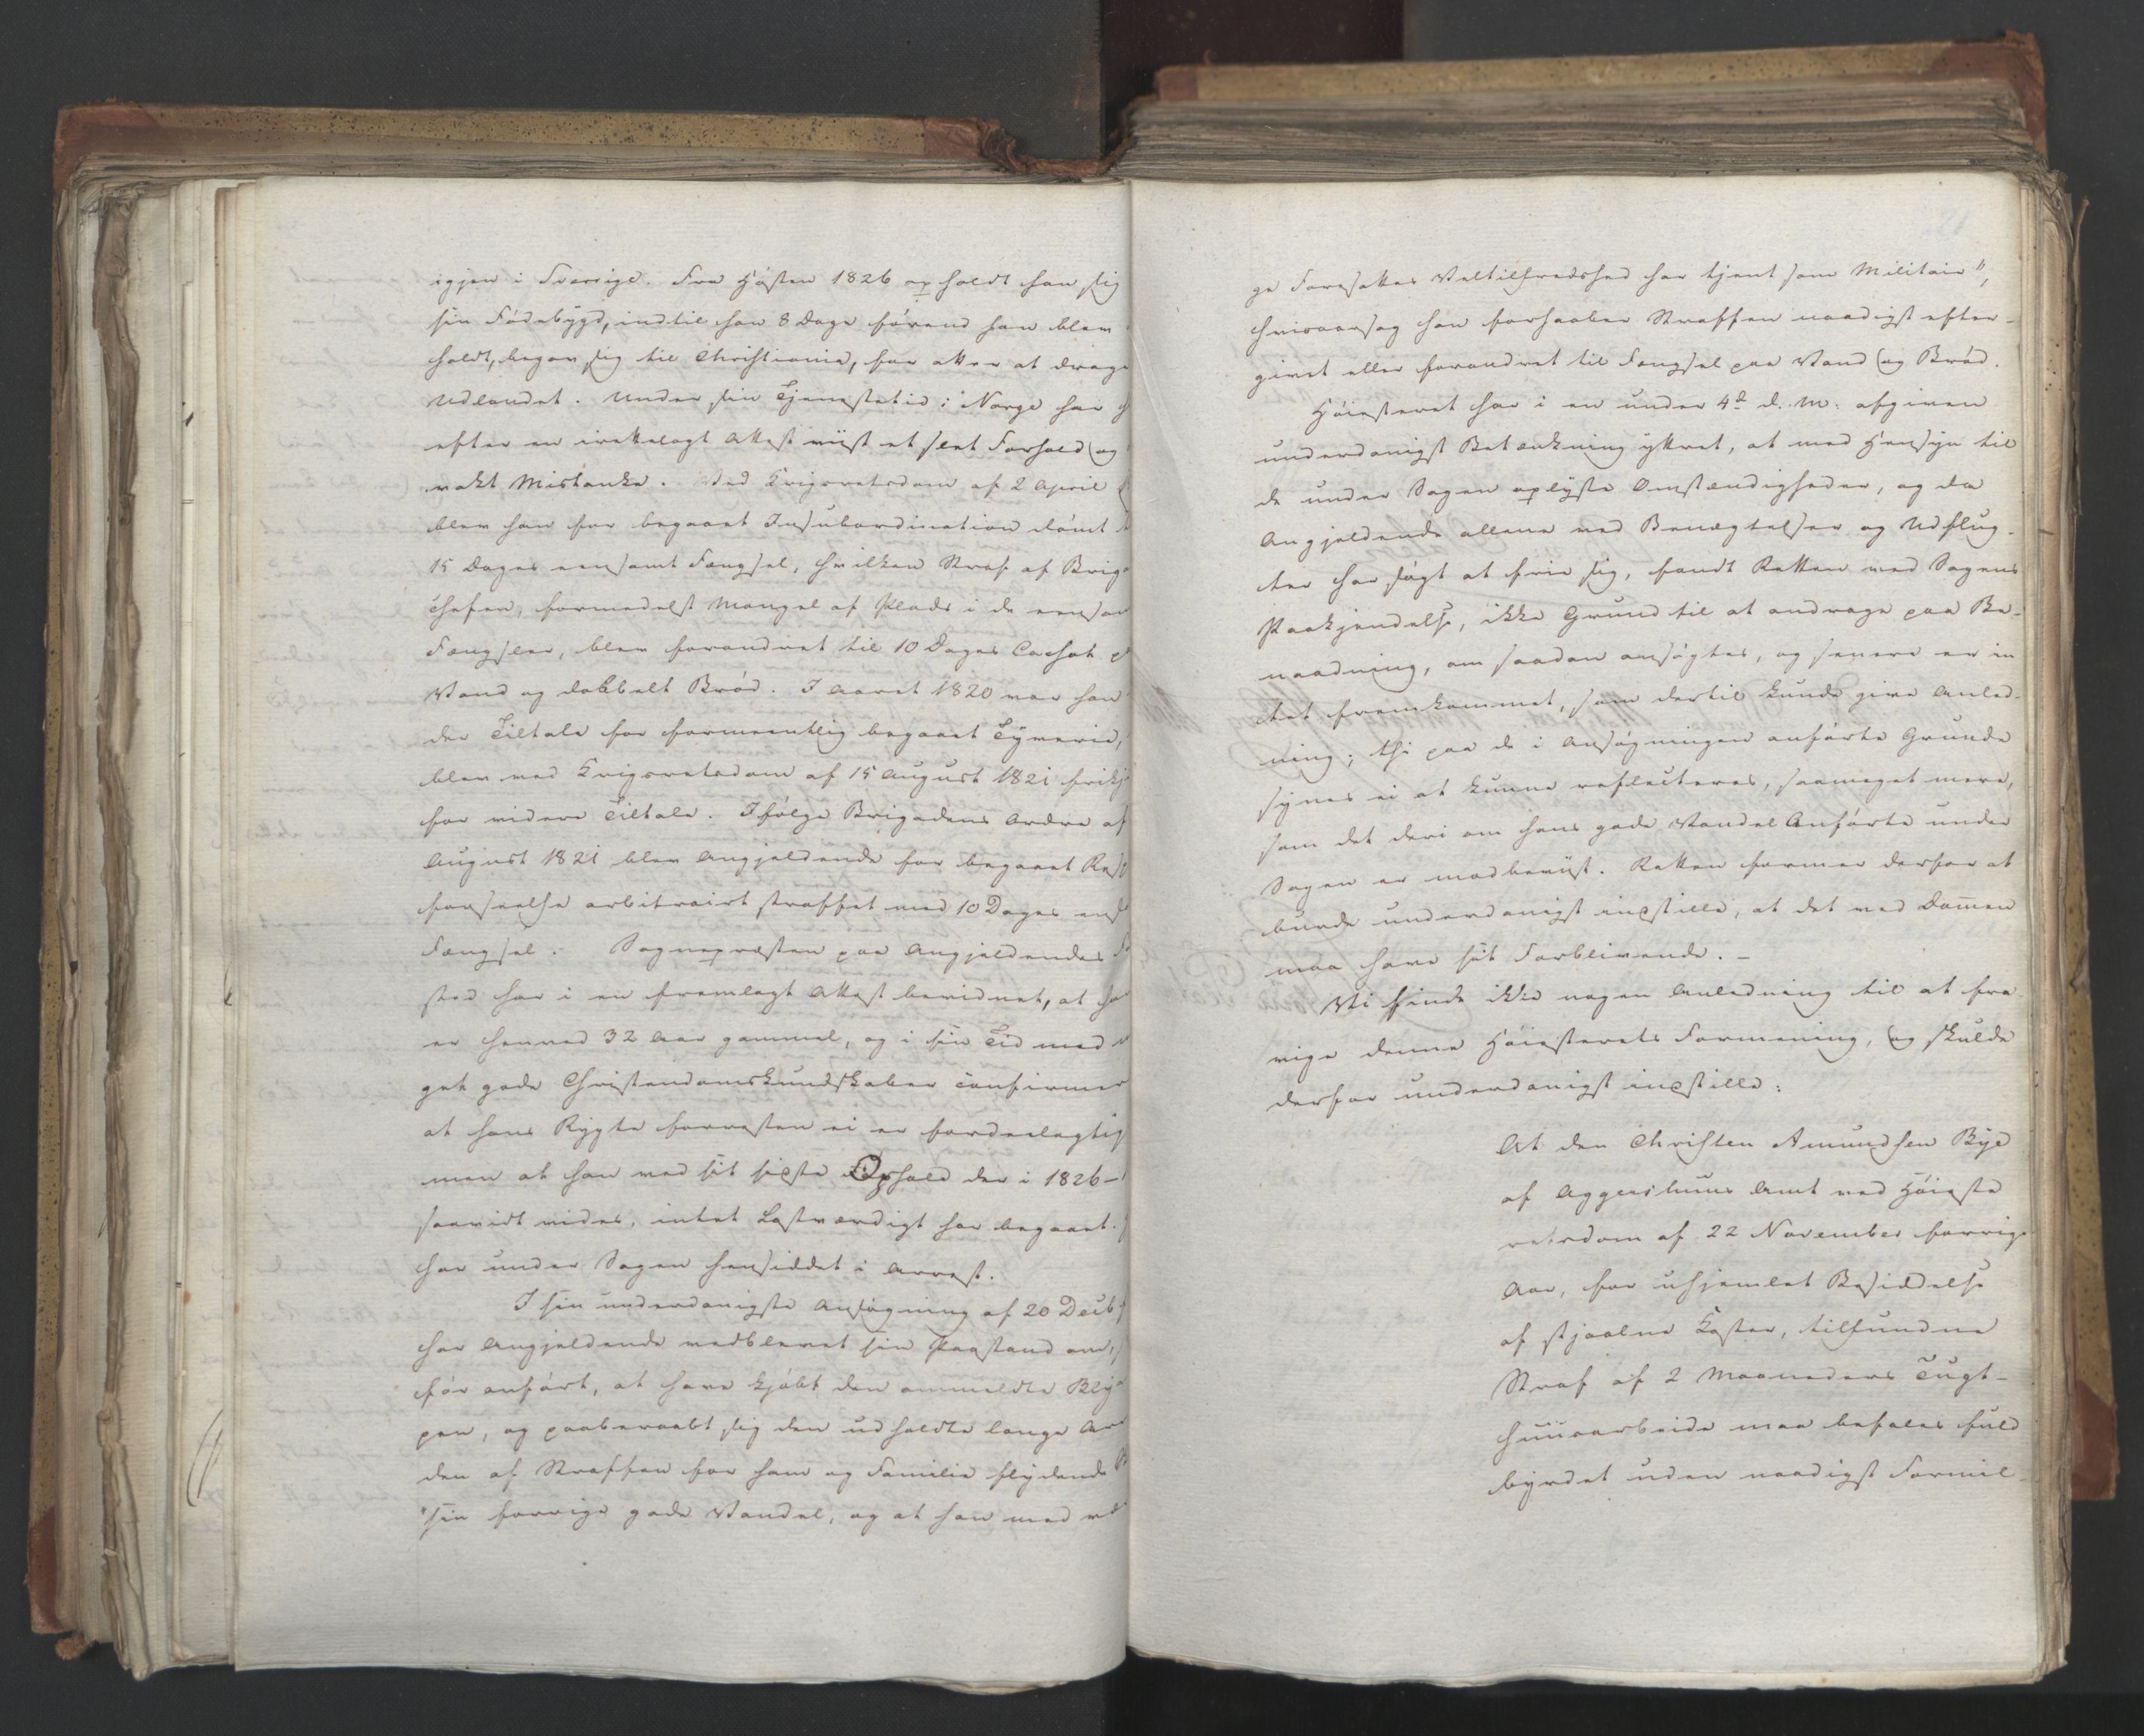 igjen i Sverige. Fra Høsten 1826 opholdt han sig
sin Fødebygd, indtil han 8 Dage førend han blev
holdt, begav sig til Christiania, for atter at drage
Udlandet. Under sin Tjenestetid i Norge har
efter en irettelagt Attest viist et slet Forhold og
vakt Mistanke. Ved Krigsretsdom af 2 April
blev han for begaaet Insubordination dømt
15 Dages eensomt Fængsel, hvilken Straf af Brig
chefen, formedelst Mangel af Plads i de eensom
Fængsler, blev forandret til 10 Dages Cachot
Vand og dobbelt Brød. I Aaret 1820 var han
der Tiltale for formeentlig begaaet Tyverie,
blev ved Krigsretsdom af 15 August 1821 frikj
for videre Tiltale. Ifølge Brigadens Ordre af
August 1821 blev Angjeldende for begaaet
forseelse arbitrairt straffet med 10 Dages
Fængsel. Sognepræsten paa Angjeldendes
sted har i en fremlagt Attest bevidnet, at
er henved 32 Aar gammel, og i sin Tid med
get gode Christendomskundskaber confirmer
at hans Rygte forresten ei er fordeelagtig
men at han ved sit sidste Ophold der i 1826 –
saavidt vides, intet Lastværdigt har begaaet.
har under Sagen hensiddet i Arrest.
I sin underdanigste Ansøgning af 20 Decb
har Angjeldende vedblevet sin Paastand om,
før anført, at have kjøbt den ommeldte
pen, og paaberaabt sig den udholdte lange
den af Straffen for ham og Familie flydende
"sin forrige gode Vandel, og at han med
ge Foresattes Veltilfredshed har tjent som Militair",
hvisaarsag han forhaaber Straffen naadigst efter-
givet eller forandret til Fængsel paa Vand og Brød.
Høiesteret har i en under 4de d. M. afgiven
underdanigst Betænkning yttret, at med Hensyn til
de under Sagen oplyste Omstændigheder, og da
Angjeldende allene ved Benægtelser og Udflug-
ter har søgt at frie sig, fandt Retten ved Sagens
Paakjendelse, ikke Grund til at andrage paa Be-
naadning, om saadan ansøgtes, og senere er in
tet fremkommet, som dertil kunde give Anled-
ning; thi paa de i Ansøgningen anførte Grunde
synes ei at kunne reflecteres, saameget mere,
som det deri om hans gode Vandel Anførte under
Sagen er modbeviist. Retten formener derfor at
burde underdanigst indstille, at det ved Dommen
maa have sit Forblivende. –
Vi finde ikke nogen Anledning til at fra
vige denne Høiesterets Formening, og skulde
derfor underdanigst indstille:
At den Christen Amundsen Bye
af Aggershuus Amt ved Høieste
retsdom af 22 November forrige
Aar, for uhjemlet Besiddelse
af stjaalne Koster, tilfundne
Straf af 2 Maaneders Tugt-
huusarbeide maa befales fuld
byrdet uden naadigst Formil-